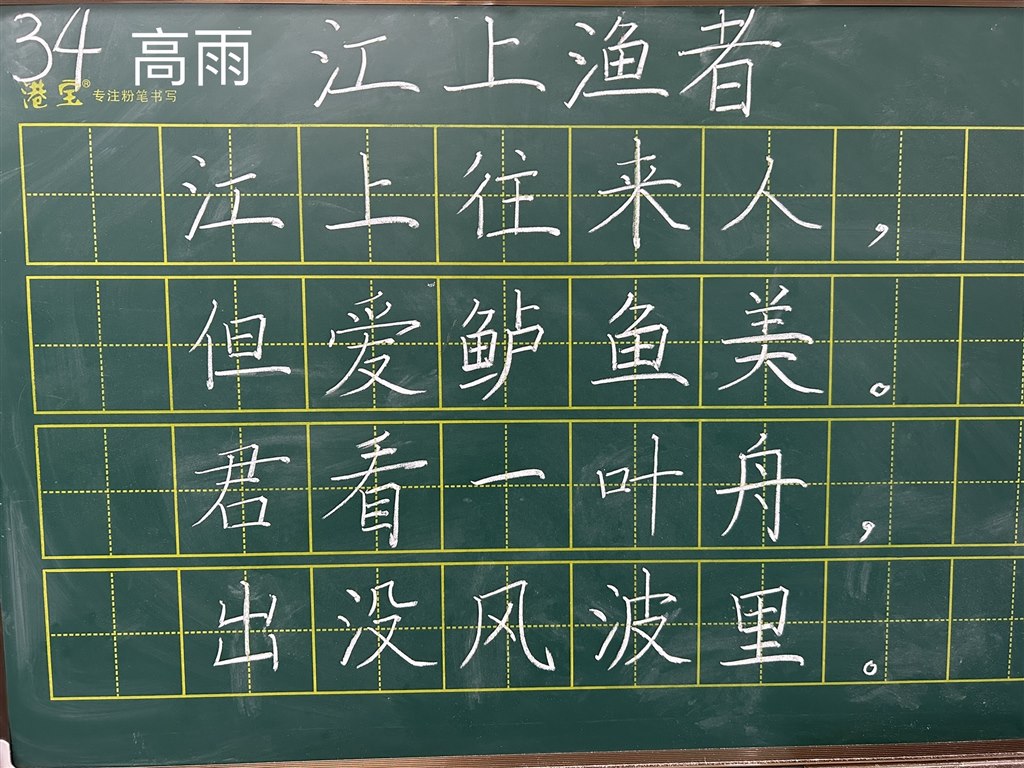 34 高雨 江上渔者
港宝® 专注粉笔书写
江上往来人，
但爱鲈鱼美。
君看一叶舟，
出没风波里。